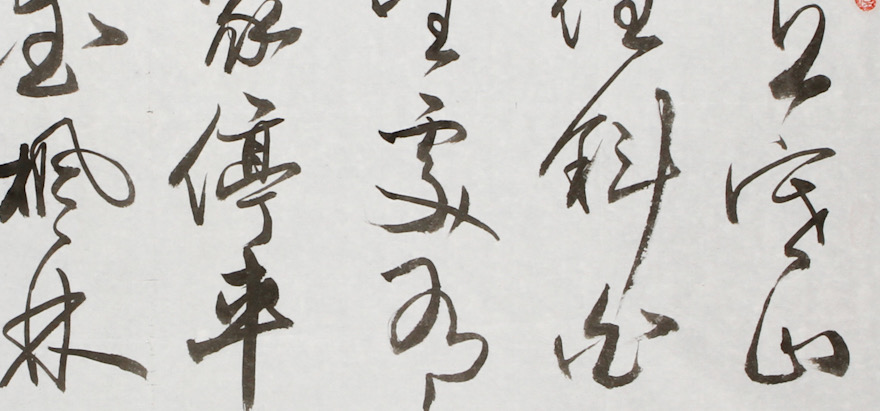 上寒山
徑斜白
生處有
家停車
愛楓林